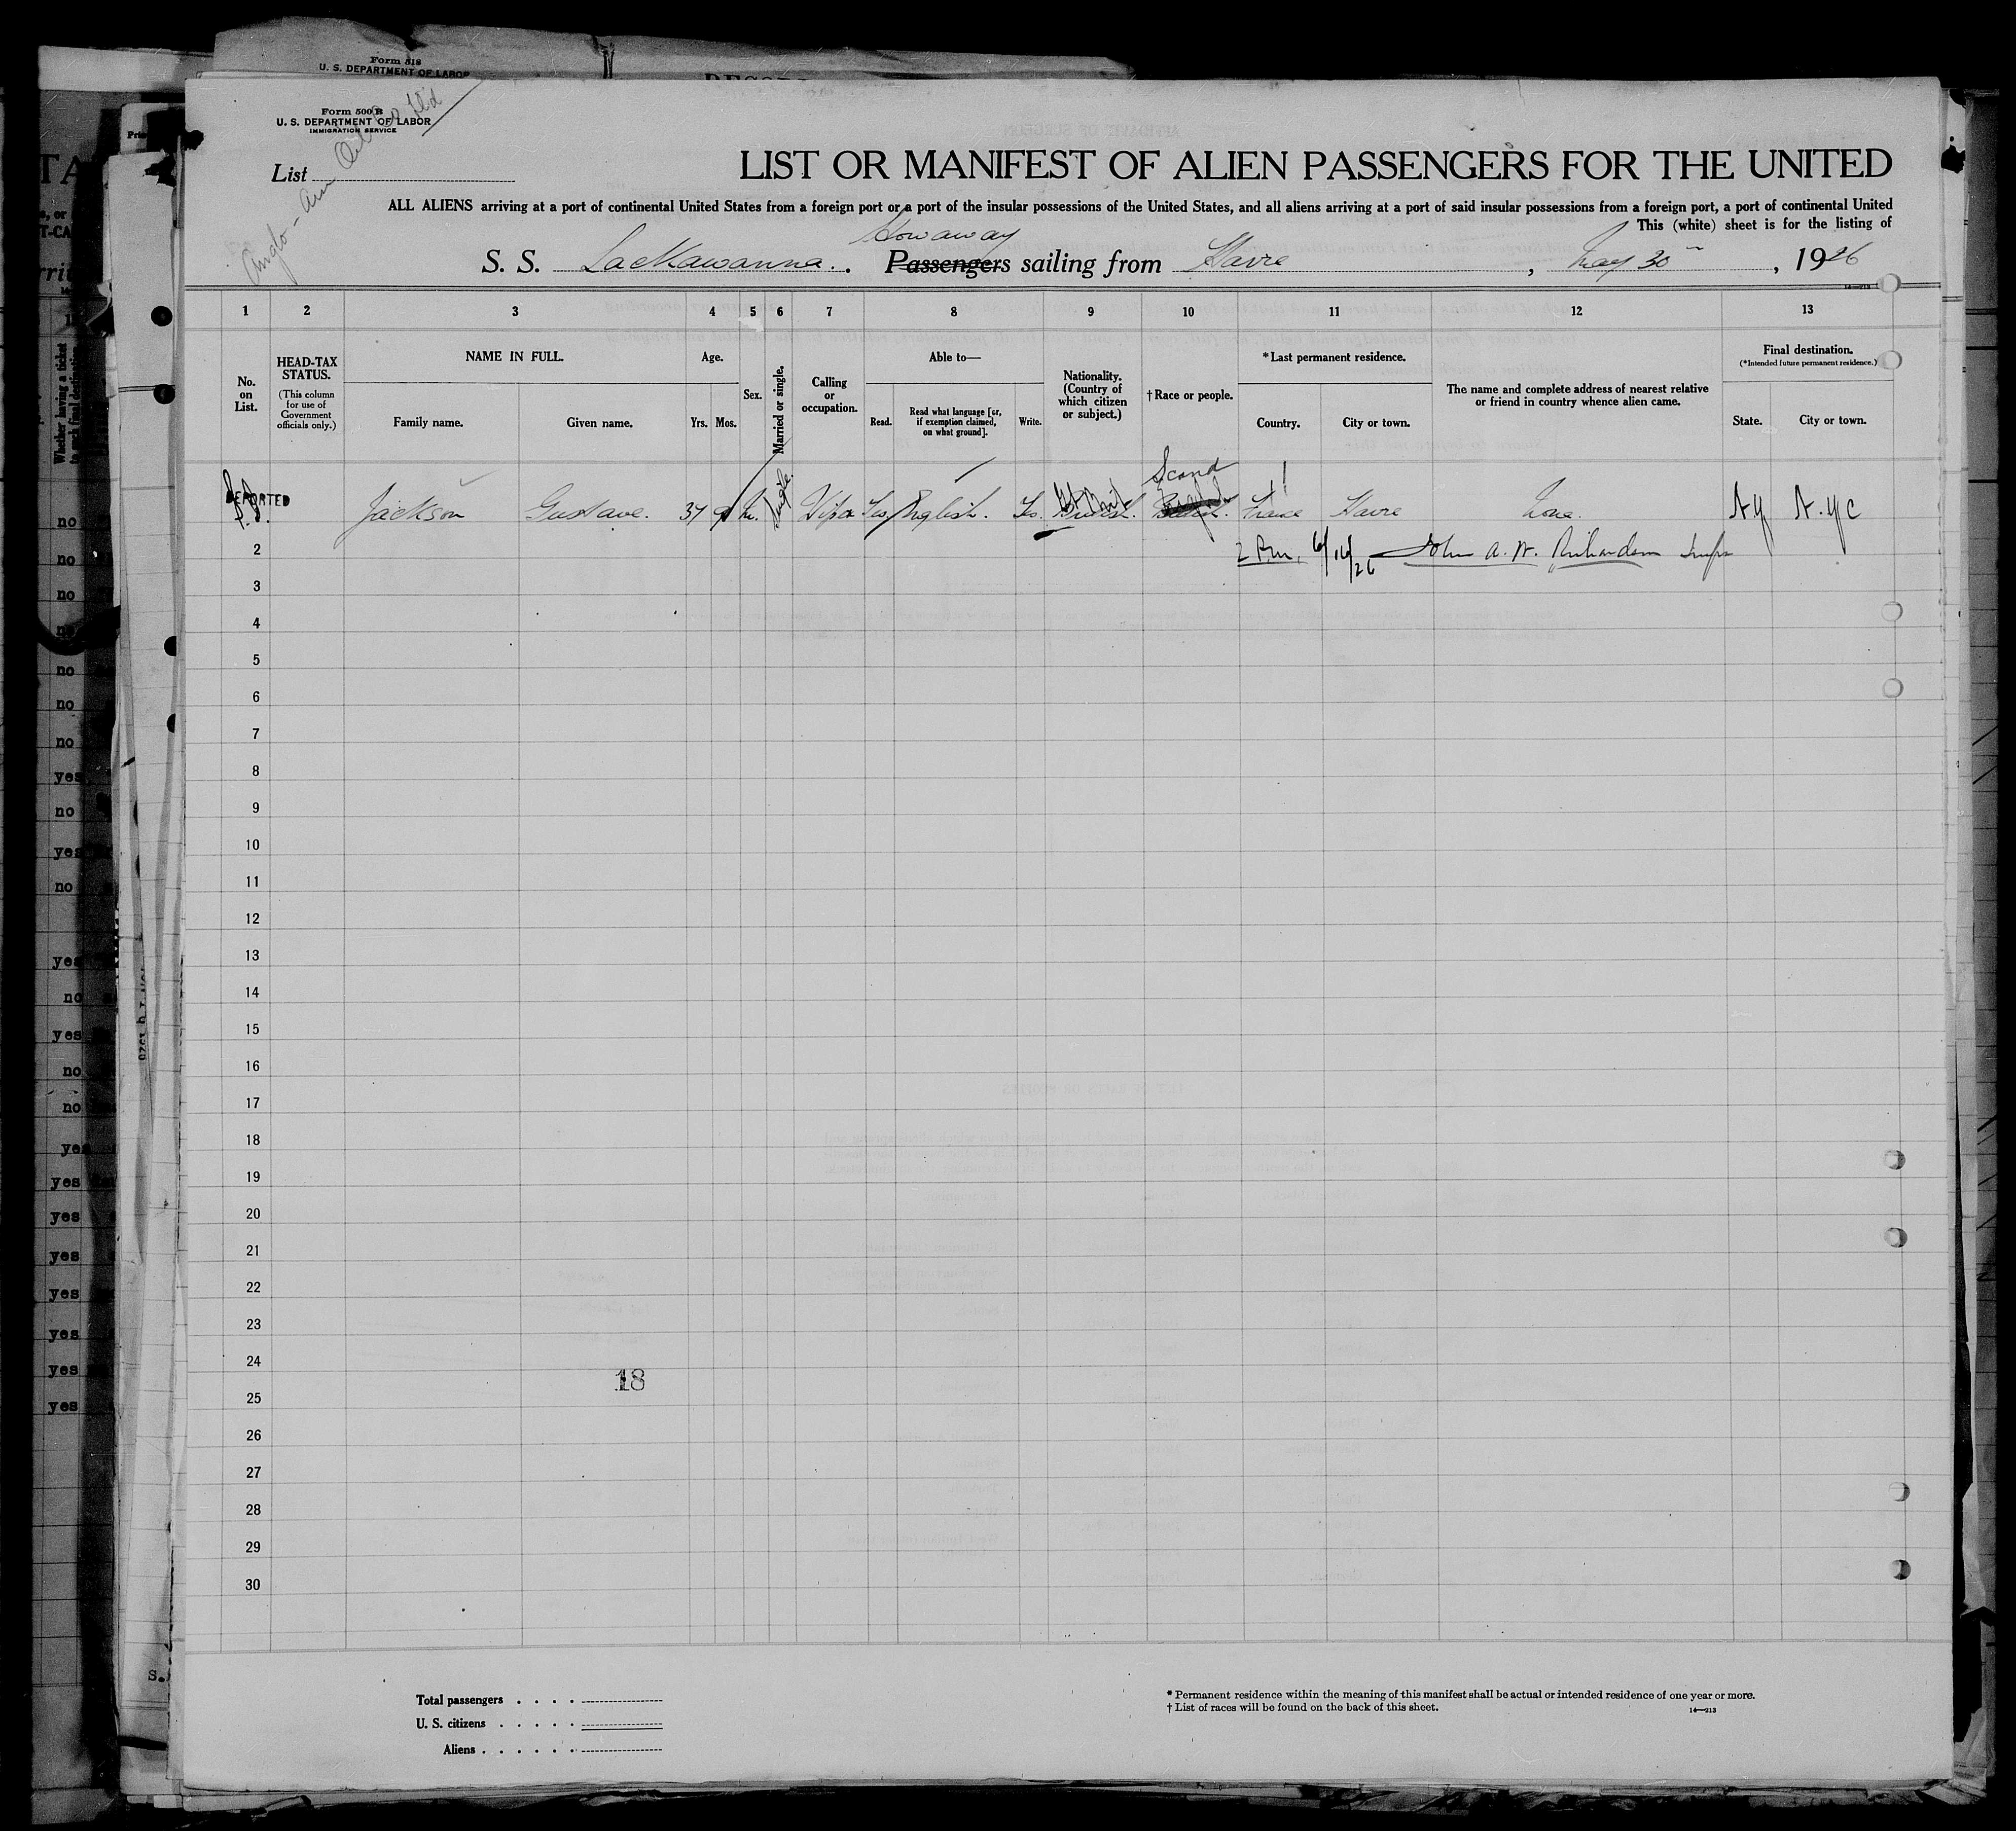 Form 518
U. S. DEPARTMENT OF LABOR
Form 500 B
U. S. DEPARTMENT OF LABOR
IMMIGRATION SERVICE
Anglo-Am Oil Co Ltd
List
LIST OR MANIFEST OF ALIEN PASSENGERS FOR THE UNITED
ALL ALIENS arriving at a port of continental United States from a foreign port or a port of the insular possessions of the United States, and all aliens arriving at a port of said insular possessions from a foreign port, a port of continental United
This (white) sheet is for the listing of
Stowaway
S. S. Lackawanna. Passengers sailing from Havre, May 30, 1926
14—213
1 2 3 4 5 6 7 8 9 10 11 12 13
No. on List.
HEAD-TAX STATUS.
(This column for use of Government officials only.)
NAME IN FULL.
Family name. Given name.
Age.
Yrs. Mos.
Sex.
Married or single.
Calling or occupation.
Able to—
Read. Read what language [or, if exemption claimed, on what ground]. Write.
Nationality. (Country of which citizen or subject.)
† Race or people.
*Last permanent residence.
Country. City or town.
The name and complete address of nearest relative or friend in country whence alien came.
Final destination.
(*Intended future permanent residence.)
State. City or town.
Scand
DEPORTED Jackson Gustave. 37 M. Single Yes English. Yes. France Havre None. NY N.Y C
2 2 P.m. 6/16/26 John A. W. Richardson Insp
3
4
5
6
7
8
9
10
11
12
13
14
15
16
17
18
19
20
21
22
23
24
18
25
26
27
28
29
30
Total passengers . . . .
U. S. citizens . . . . .
Aliens . . . . . .
* Permanent residence within the meaning of this manifest shall be actual or intended residence of one year or more.
† List of races will be found on the back of this sheet.
14—213